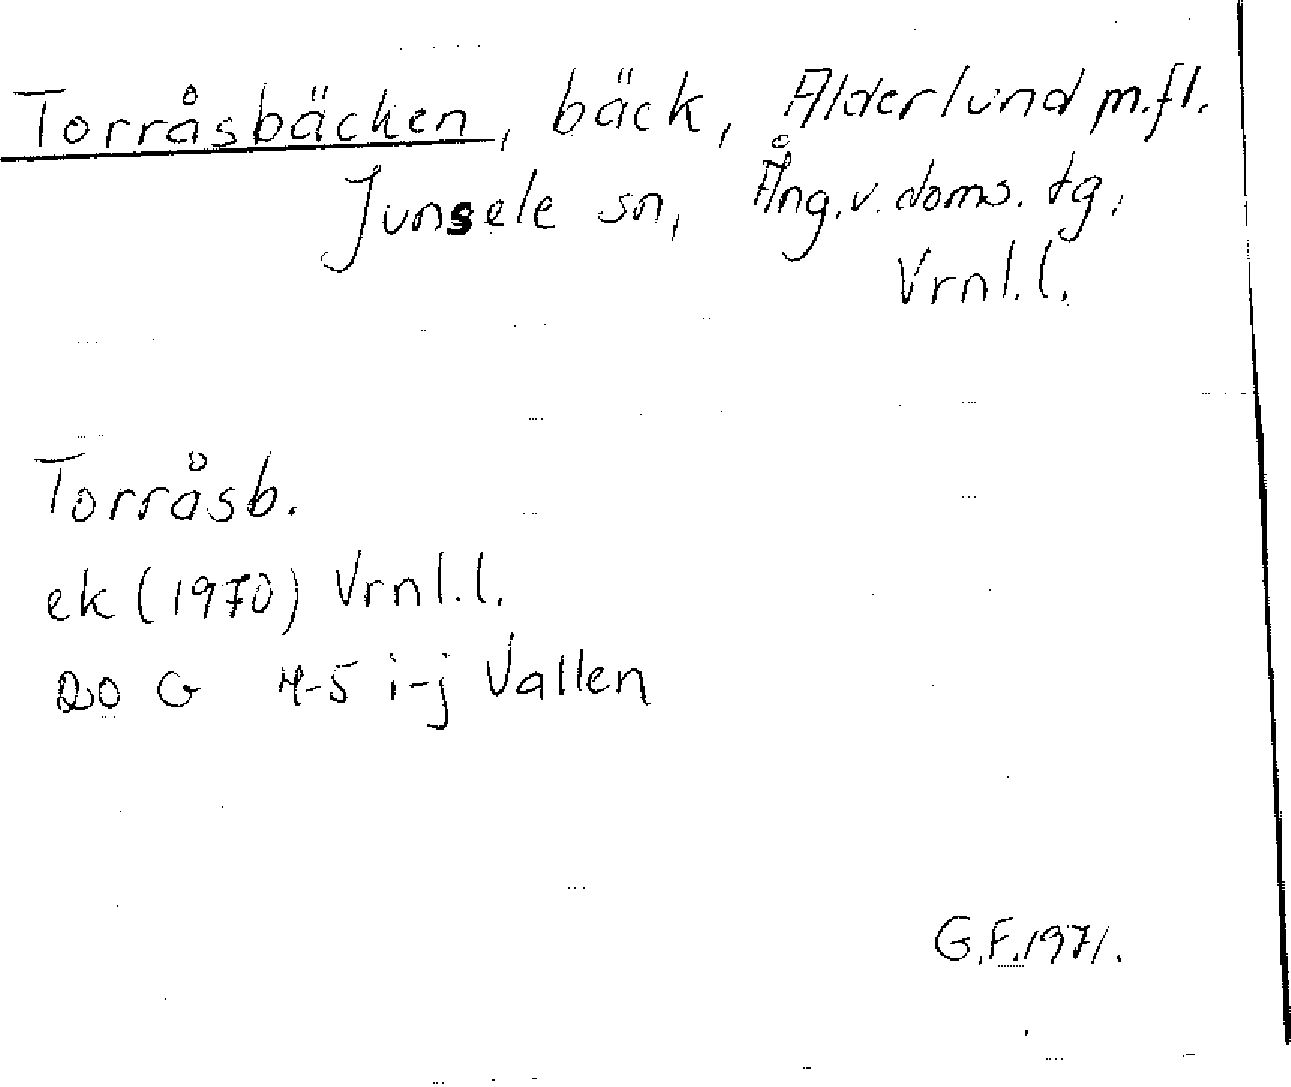 Torråsbäcken, bäck, Alderlund m.fl.
Junsele sn, Ång.v.doms.tg,
Vrnl.l.
Torråsb.
ek (1970) Vrnl.l.
20 G 4-5 i-j Vallen
G.F.1971.